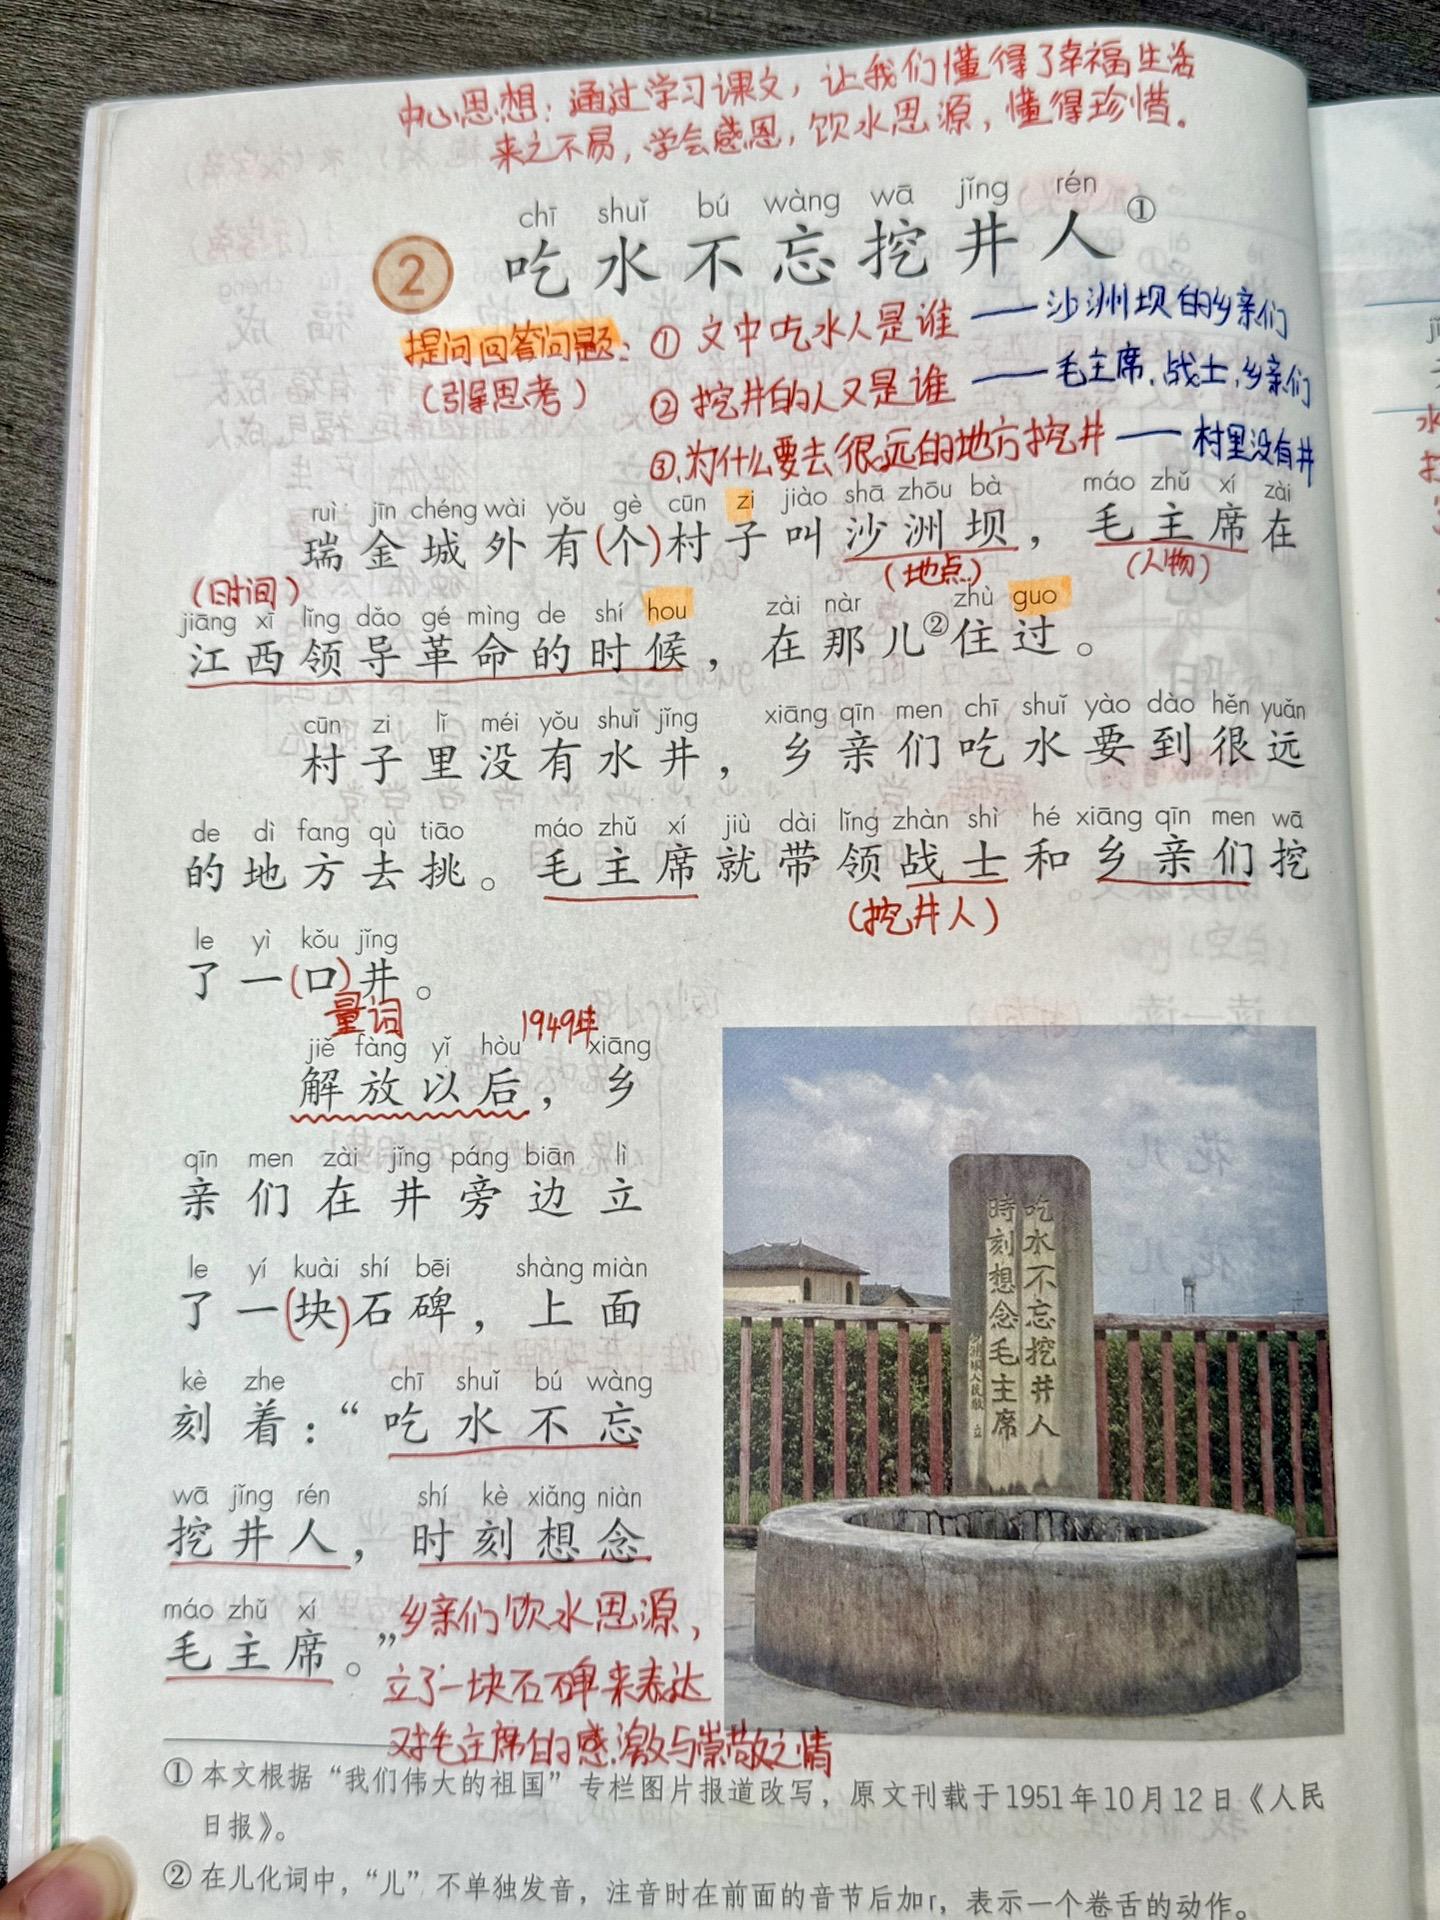 中心思想：通过学习课文，让我们懂得了幸福生活
来之不易，学会感恩，饮水思源，懂得珍惜。
chī shuǐ bú wàng wā jǐng rén
2 吃水不忘挖井人①
提问回答问题：① 文中吃水人是谁 —— 沙洲坝的乡亲们
（引导思考） ② 挖井的人又是谁 —— 毛主席、战士、乡亲们
③.为什么要去很远的地方挖井 —— 村里没有井
ruì jīn chéng wài yǒu gè cūn zi jiào shā zhōu bà máo zhǔ xí zài
瑞金城外有(个)村子叫沙洲坝，毛主席在
(时间) (地点) (人物)
jiāng xī lǐng dǎo gé mìng de shí hou zài nàr zhù guo
江西领导革命的时候，在那儿②住过。
cūn zi lǐ méi yǒu shuǐ jǐng xiāng qīn men chī shuǐ yào dào hěn yuǎn
村子里没有水井，乡亲们吃水要到很远
de dì fang qù tiāo máo zhǔ xí jiù dài lǐng zhàn shì hé xiāng qīn men wā
的地方去挑。毛主席就带领战士和乡亲们挖
(挖井人)
le yì kǒu jǐng
了一(口)井。
量词 1949年
jiě fàng yǐ hòu xiāng
解放以后，乡
qīn men zài jǐng páng biān lì
亲们在井旁边立
le yí kuài shí bēi shàng miàn
了一(块)石碑，上面
kè zhe chī shuǐ bú wàng
刻着：“吃水不忘
wā jǐng rén shí kè xiǎng niàn
挖井人，时刻想念
máo zhǔ xí
毛主席。”
乡亲们饮水思源，
立了一块石碑来表达
对毛主席的感激与崇敬之情
吃水不忘挖井人
時刻想念毛主席
① 本文根据“我们伟大的祖国”专栏图片报道改写，原文刊载于1951年10月12日《人民
日报》。
② 在儿化词中，“儿”不单独发音，注音时在前面的音节后加r，表示一个卷舌的动作。